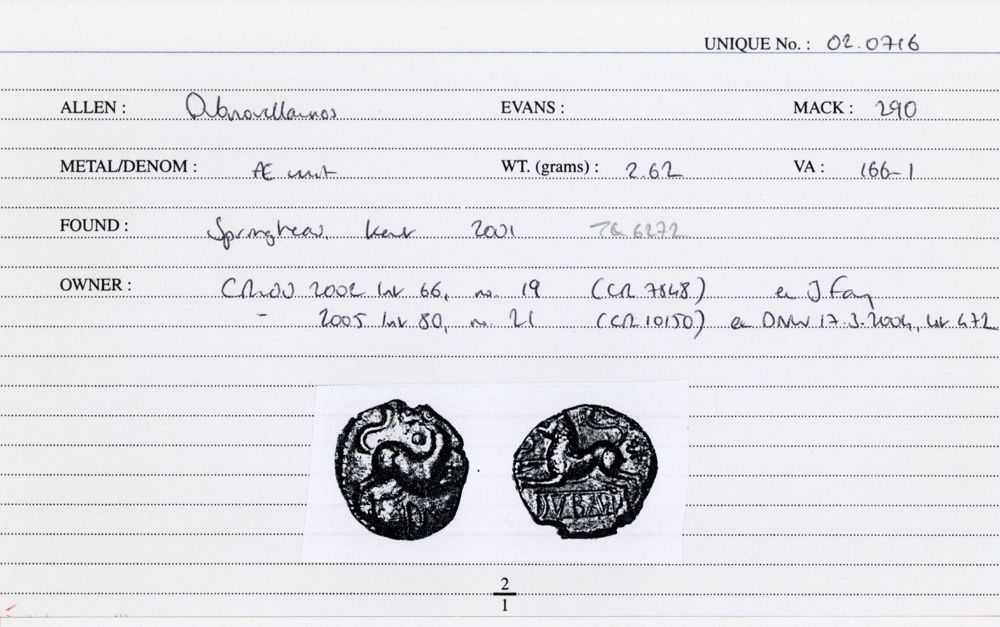 UNIQUE No. : 02.0716
ALLEN : Dubnovellaunos EVANS : MACK : 290
METAL/DENOM : Æ unit WT. (grams) : 2.62 VA : 166-1
FOUND : Springhead, Kent 2001 TQ 6272
OWNER : 2002 lot 66, no. 19 (CR 7848) ex J Fay
- 2005 lot 80, no. 21 (CR 10150) ex DNW 17.3.2004, lot 472
DVBN
2
1